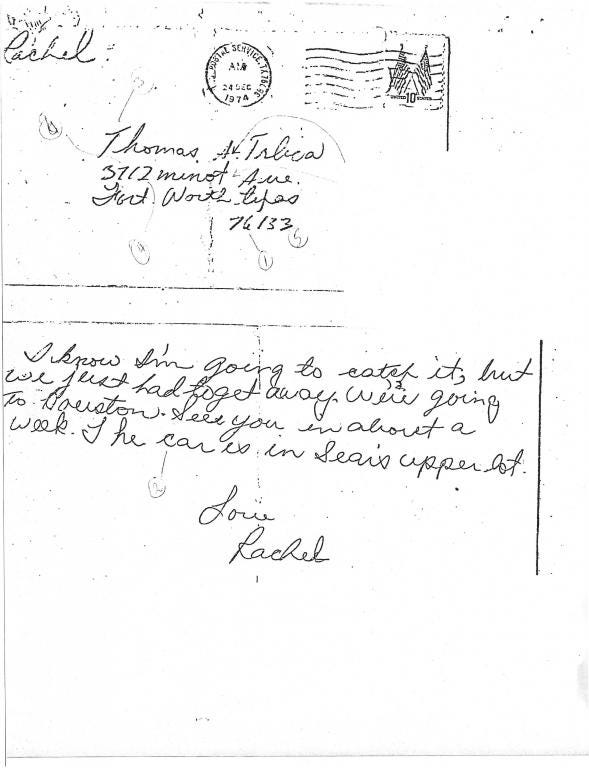 Rachel
POSTAL SERVICE, TX
24 DEC
1974
10¢
Thomas A Trlica
3712 minot Ave.
Fort Worth Texas
76133
1
I know I'm going to catch it, but
we just had to get away. We're going
to Houston. See you in about a
week. The car is in Sear's upper lot.
2
Love
Rachel